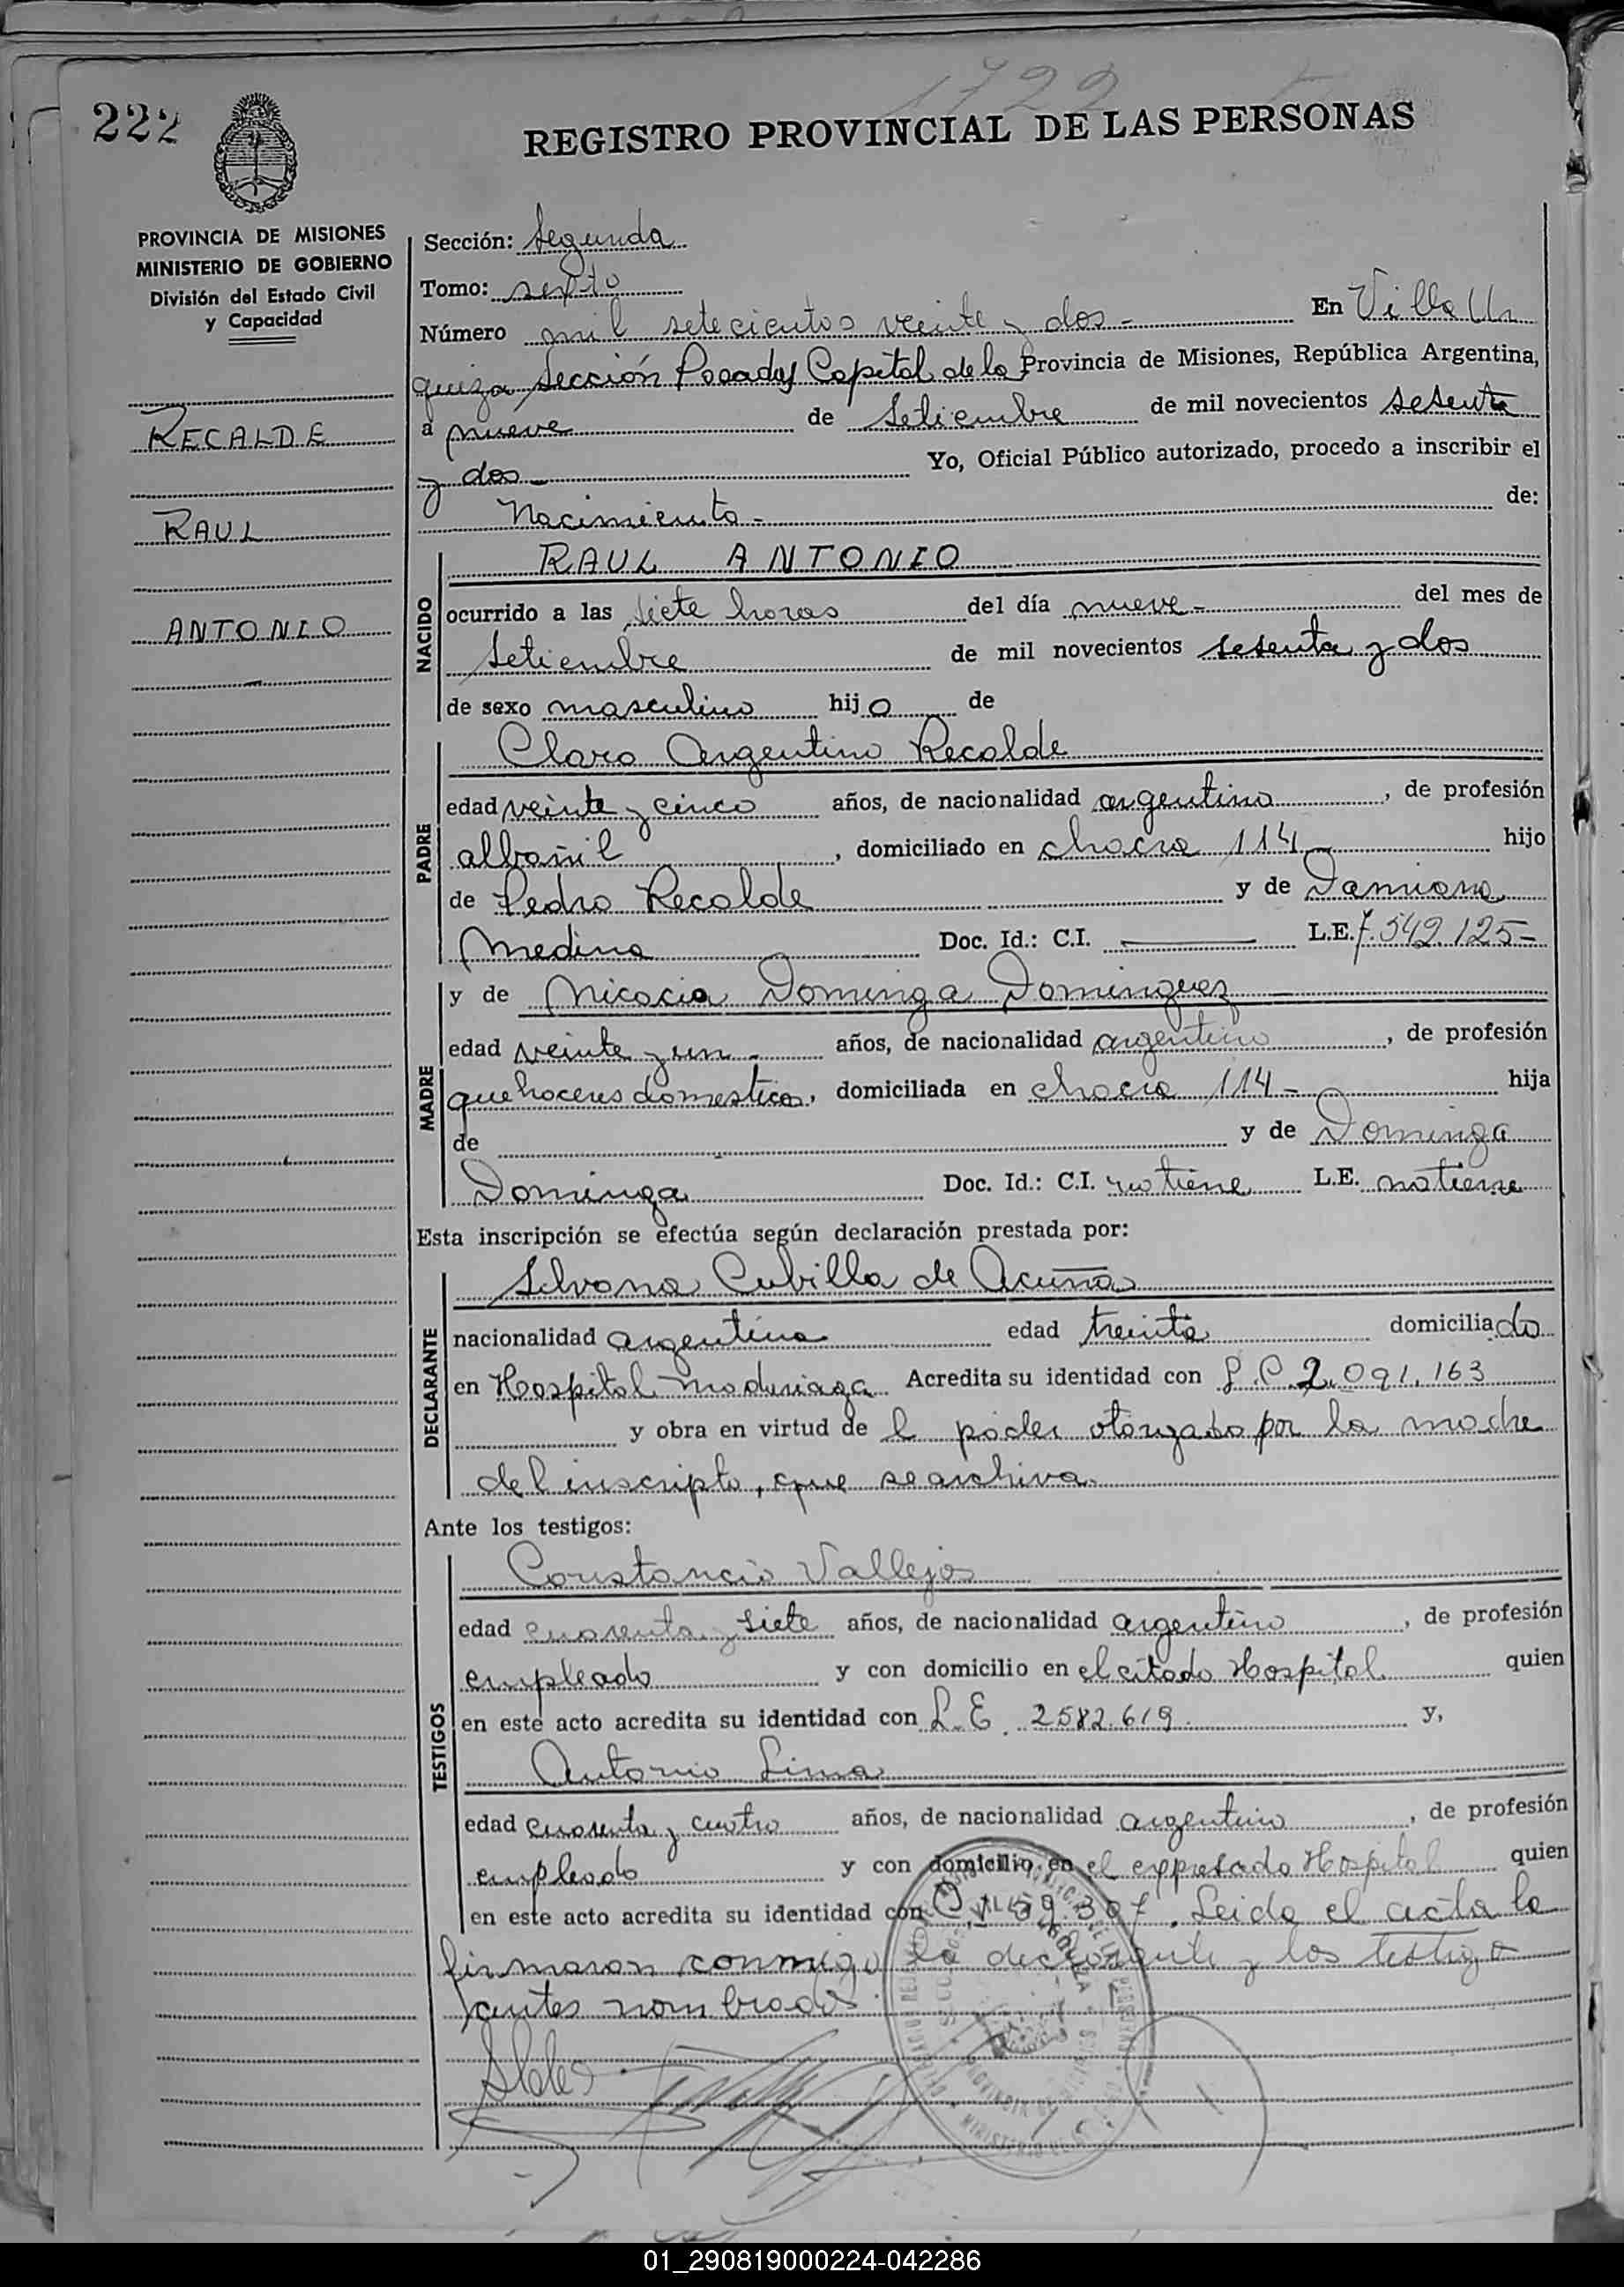 1722
222
REGISTRO PROVINCIAL DE LAS PERSONAS
PROVINCIA DE MISIONES
MINISTERIO DE GOBIERNO
División del Estado Civil
y Capacidad
RECALDE
RAUL
ANTONIO
Sección: Segunda
Tomo: sexto
Número mil setecientos veinte y dos - En Villa Ur
quiza Sección Posadas Capital de la Provincia de Misiones, República Argentina,
a nueve de Setiembre de mil novecientos setenta
y dos - Yo, Oficial Público autorizado, procedo a inscribir el
Nacimiento - de:
NACIDO
RAUL ANTONIO
ocurrido a las siete horas del día nueve - del mes de
Setiembre de mil novecientos setenta y dos
de sexo masculino hijo de
PADRE
Claro Argentino Recalde
edad veinte y cinco años, de nacionalidad argentino, de profesión
albañil, domiciliado en chacra 114 - hijo
de Pedro Recalde y de Damiana
Medina Doc. Id.: C.I. — L.E. 7.542.125-
MADRE
y de Nicacia Dominga Dominguez
edad veinte y un - años, de nacionalidad argentino, de profesión
quehaceres domesticos, domiciliada en chacra 114 - hija
de y de Dominga
Dominga Doc. Id.: C.I. no tiene L.E. no tiene
Esta inscripción se efectúa según declaración prestada por:
DECLARANTE
Silvana Cubilla de Acuña
nacionalidad argentina edad treinta domiciliado
en Hospital Madariaga Acredita su identidad con L.C 2.091.163
y obra en virtud de l poder otorgado por la madre
del inscripto, que se archiva.
Ante los testigos:
TESTIGOS
Constancio Vallejos
edad cuarenta y siete años, de nacionalidad argentino, de profesión
empleado y con domicilio en el citado Hospital quien
en este acto acredita su identidad con L.E. 2582.619. y,
Antonio Lima
edad cuarenta y cuatro años, de nacionalidad argentino, de profesión
empleado y con domicilio en el expresado Hospital quien
en este acto acredita su identidad con 59.307. Leida el acta la
firmaron conmigo la declarante y los testigo
antes nombrados.
01_290819000224-042286